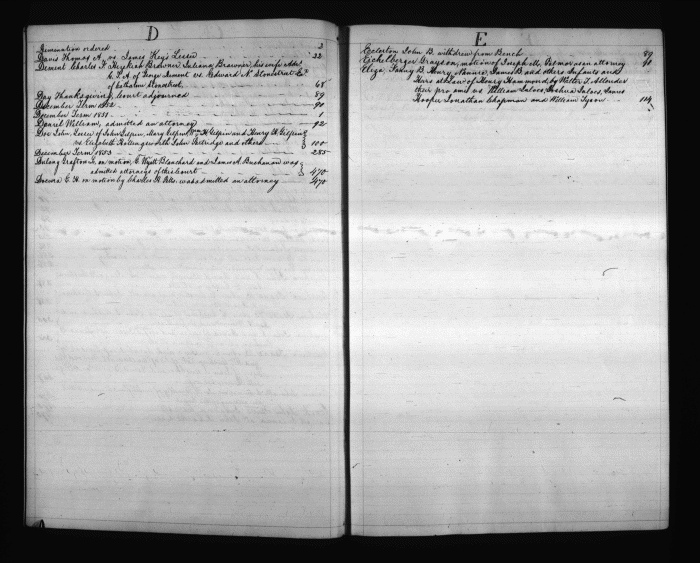 D
ordered 2
Davis Thomas A. vs James Key's Lessee 22
Dement Charles F. Stephen Brawner Juliana Brawner, his wife Adm
of Dement vs. Edward N. Stonestreet Ex.
of Stonestreet. 68
Day Thanksgiving, court adjourned 89
December Term 1852 90
December Term 1851 1
Daniel William, admitted an attorney 92
Doe John, Lessee of John Gilpin, Mary Gilpin, Wm H. Gilpin and Henry H. Gilpin
vs Elizabeth Hollingsworth John Partridge and others 100
December Term 1853 285
Dulany Grafton L. on motion, C. Wyatt Blanchard and James A. Buchanan was
admitted attorneys of this court 470
C. H. on motion by Charles H. Pitts, was admitted an attorney 470
E
Eccleston John B. withdrew from Bench 89
Eichelberger Grayson, on motion of Joseph M. Palmer was an attorney 90
Eliza, Fanny B. Henry, Nannie, James B. and others Infants and
Heirs at Law of Henry Hammond, by Walter T. Allender
their pro ami vs William Inloes, Joshua Inloes, James
Hooper Jonathan Chapman and William Tyson 104